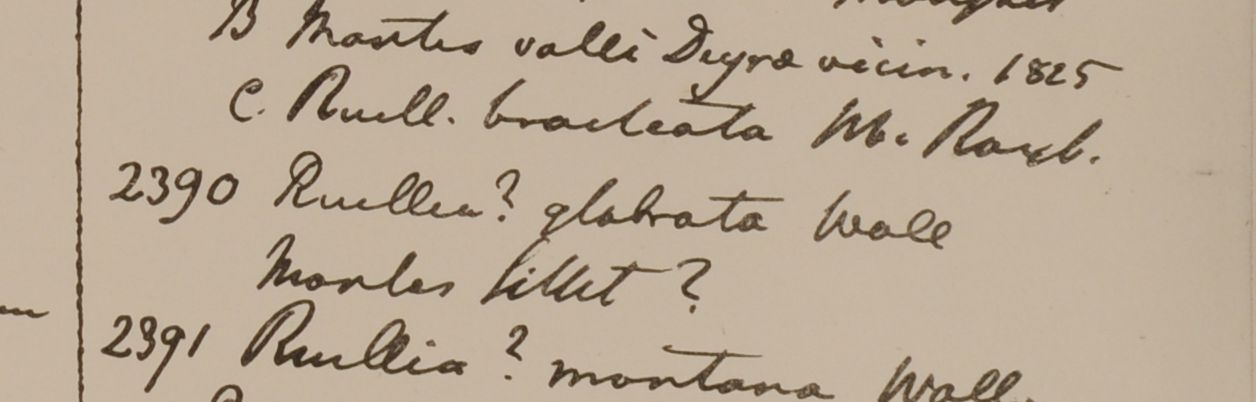 B Montes valli Deyra vicin. 1825
C. Ruell. bracteata M. Roxb.
2390 Ruellia? glabrata Wall
Montes Sillet ?
2391 Ruellia ? montana Wall.